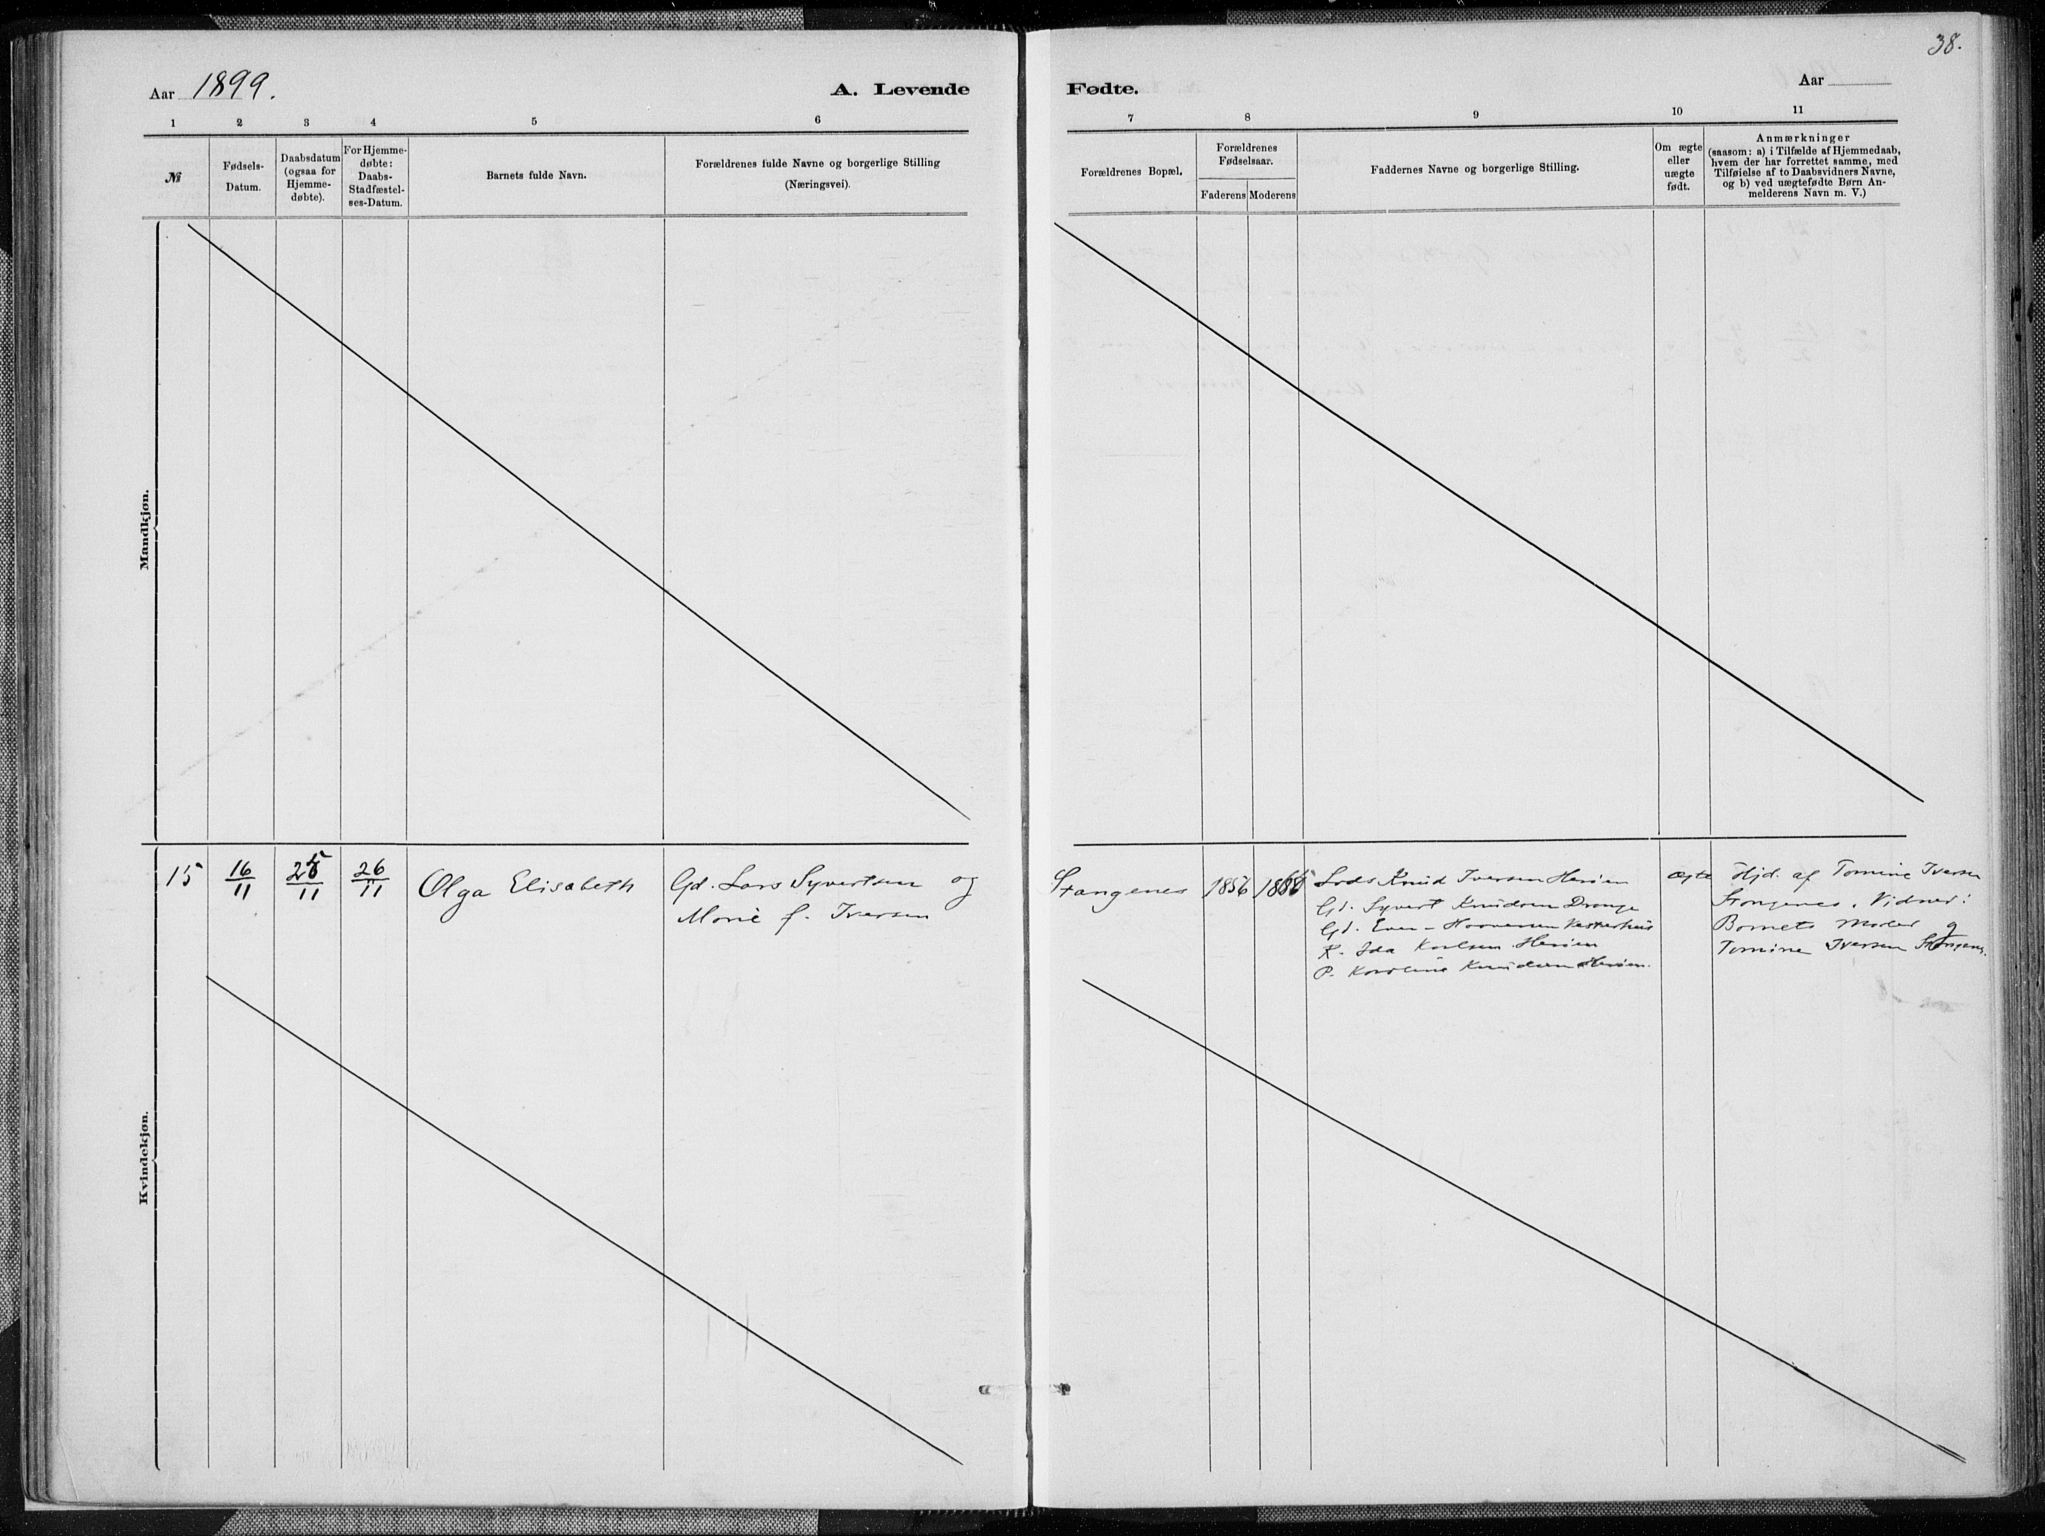 38.
Aar 1899.
A. Levende
Fødte.
Aar
1 2 3 4 5 6
7 8 9 10 11
№
Fødsels-
Datum.
Daabsdatum
(ogsaa for
Hjemme-
døbte).
For Hjemme-
døbte:
Daabs-
Stadfæstel-
ses-Datum.
Barnets fulde Navn.
Forældrenes fulde Navne og borgerlige Stilling
(Næringsvei).
Forældrenes Bopæl.
Forældrenes
Fødselsaar.
Faderens
Moderens
Faddernes Navne og borgerlige Stilling.
Om ægte
eller
uægte
født.
Anmærkninger
(saasom: a) i Tilfælde af Hjemmedaab,
hvem der har forrettet samme, med
Tilføielse af to Daabsvidners Navne,
og b) ved uægtefødte Børn An-
melderens Navn m. V.)
Mandkjøn.
Kvindekjøn.
15
16/11
25/11
26/11
Olga Elisabeth
Gd. Lars Syvertsen og
Marie f. Iversen
Stangenes
1856
Lods Knud Iversen Herøen
Gd. Syvert Knudsen Drange
Gd. Even Vesterhus
K. Ida Karlsen Herøen
P. Karoline Knudsen Herøen.
ægte
Hjd. af Tomine Iversen
Stangenes. Vidner:
Barnets Moder og
Tomine Iversen Stangenes.